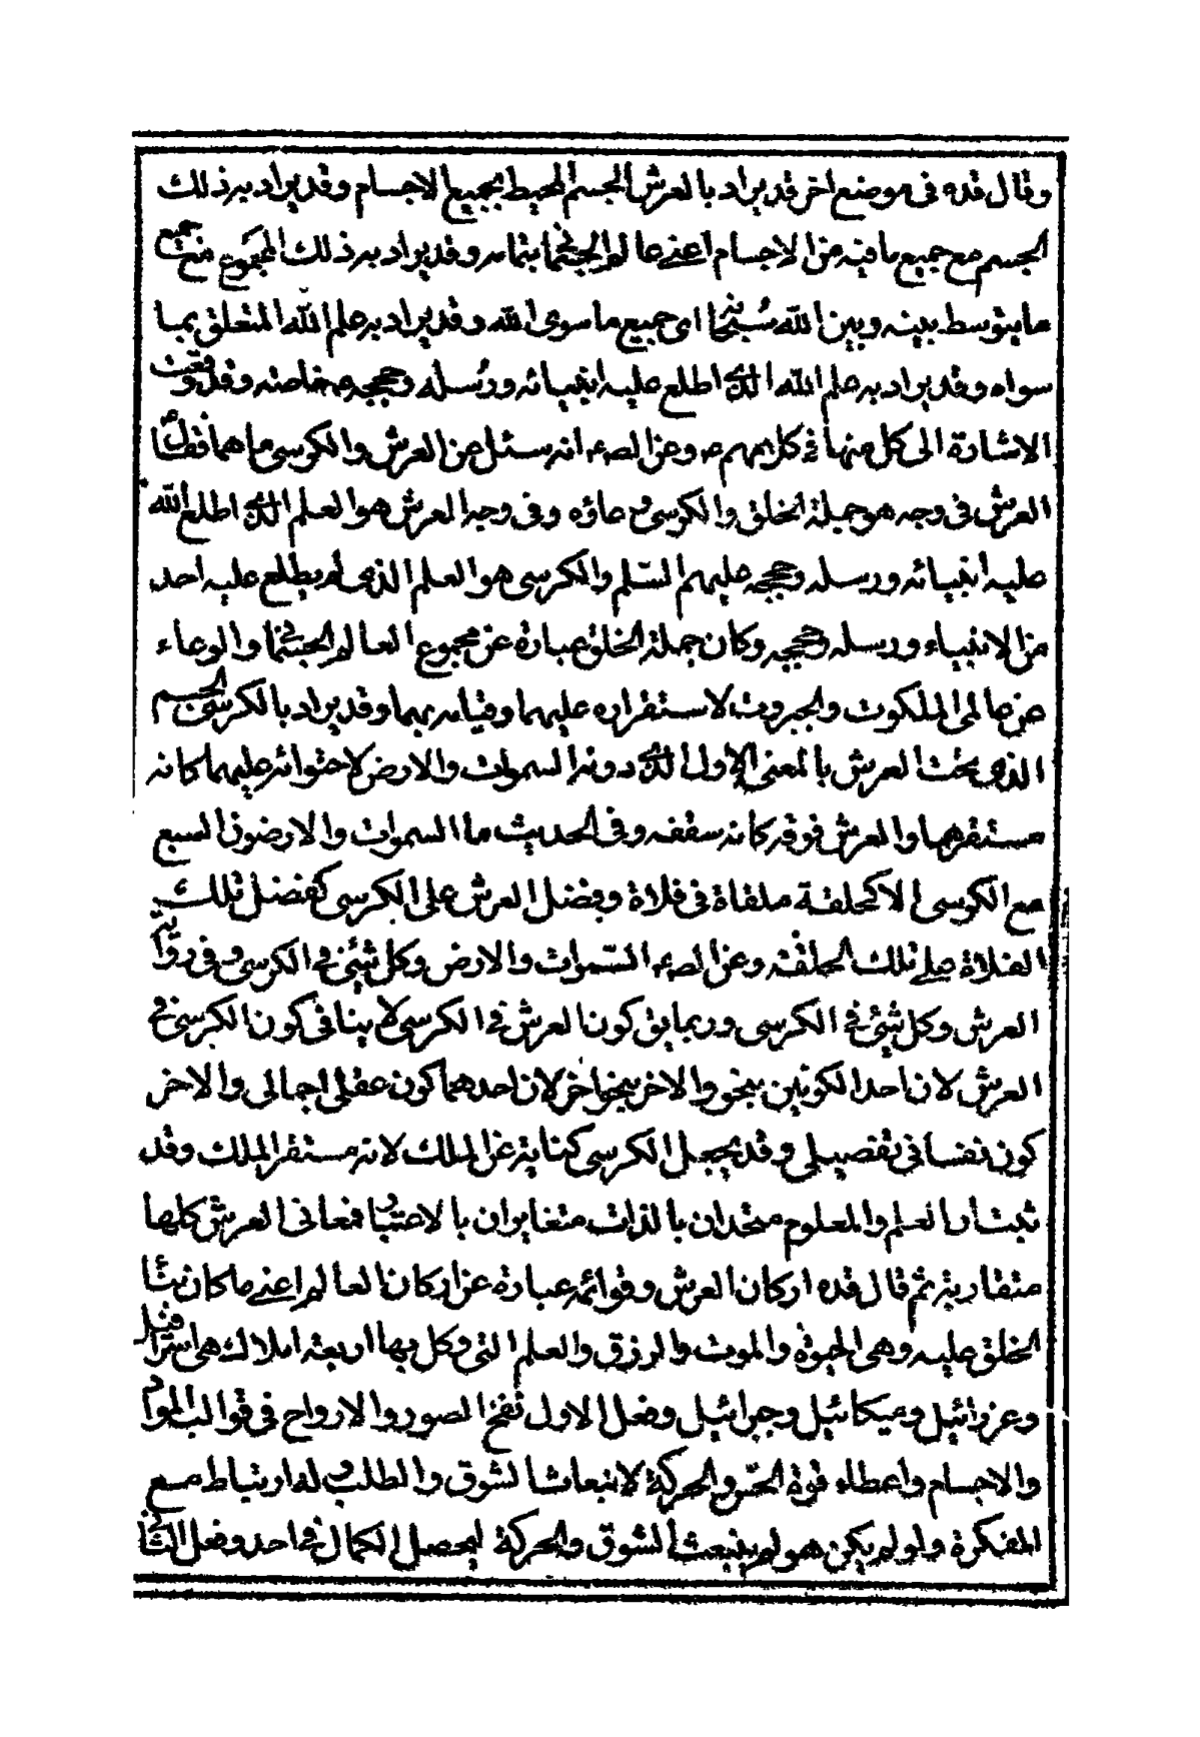 وقال قده فى موضع اخر قد يراد بالعرش الجسم المحيط بجميع الاجسام وقد يراد به ذلك
الجسم مع جميع ما فيه من الاجسام اعنى عالم الجسمانى بتمامه وقد يراد به ذلك المجموع مع جميع
ما يتوسط بينه وبين الله سبحانه اى جميع ما سوى الله وقد يراد به علم الله المتعلق بما
سواه وقد يراد به علم الله الذى اطلع عليه انبيائه ورسله وحججه خاصته وقد وقعت
الاشارة الى كل منها فى كلامهم ع وعن الص ع انه سئل عن العرش والكرسى ما هما فقال
العرش فى وجه هو جملة الخلق والكرسى وعاؤه وفى وجه العرش هو العلم الذى اطلع الله
عليه انبيائه ورسله وحججه عليهم السلم والكرسى هو العلم الذى لم يطلع عليه احد
من الانبياء ورسله وحججه وكان جملة الخلق عبارة عن مجموع العالم الجسمانى والوعاء
عن عالمى الملكوت والجبروت لاستقراره عليهما وقيامه بهما وقد يراد بالكرسى الجسم
الذى تحت العرش بالمعنى الاول الذى دونه السموات والارض لاحتوائه عليهما كانه
مستقرهما والعرش فوقه كانه سقفه وفى الحديث ما السموات والارضون السبع
مع الكرسى الا كحلقة ملقاة فى فلاة وفضل العرش على الكرسى كفضل تلك
الفلاة على تلك الحلقة وعن الص ع السموات والارض وكل شئ فى الكرسى وفى رواية
العرش وكل شئ فى الكرسى وربما يق كون العرش فى الكرسى لا ينافى كون الكرسى فى
العرش لان احد الكونين بنحو والاخر بنحو اخر لان احدهما كون عقلى اجمالى والاخر
كون نفسانى تفصيلى وقد يجعل الكرسى كناية عن الملك لانه مستقر الملك وقد
ثبت ان العلم والمعلوم متحدان بالذات متغايران بالاعتبار فمعانى العرش كلها
متقاربة ثم قال قده اركان العرش وقوائمه عبارة عن اركان العالم اعنى ما كان بناء
الخلق عليه وهى الحيوة والموت والرزق والعلم التى وكل بها اربعة املاك هى اسرافيل
وعزرائيل وميكائيل وجبرائيل وفعل الاول نفخ الصور والارواح فى قوالب المواد
والاجسام واعطاء قوة الحس والحركة لانبعاث الشوق والطلب وله ارتباط مع
المفكرة ولو لم يكن هو لم ينبعث الشوق والحركة لتحصل الكمال فى احد وفعل الثانى